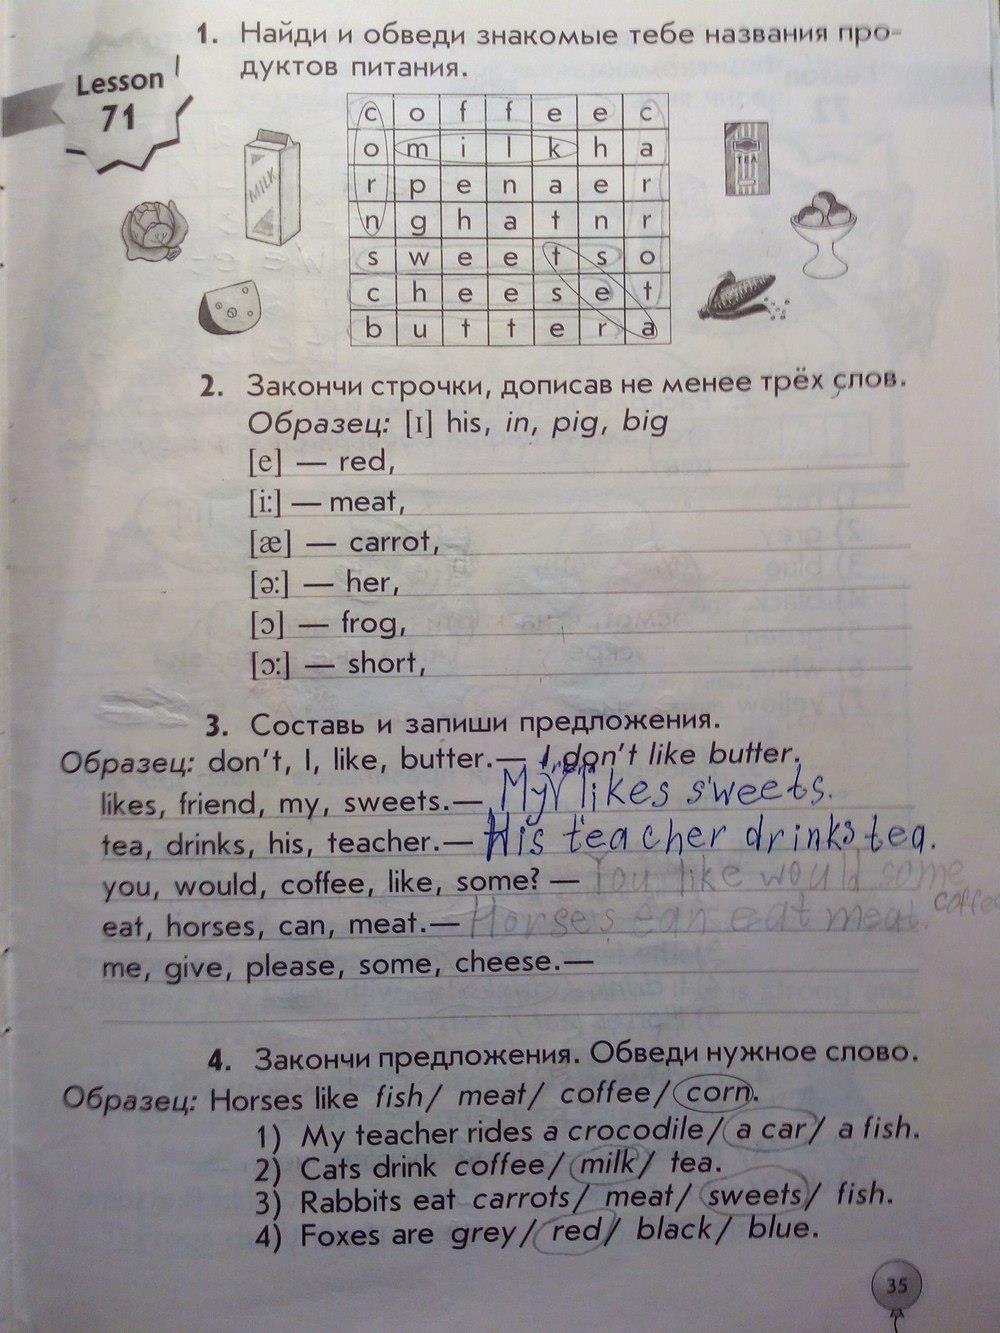 1. Найди и обведи знакомые тебе названия про-
дуктов питания.
Lesson
71
MILK
TEA
c o f f e e c
o m i l k h a
r p e n a e r
n g h a t n r
s w e e t s o
c h e e s e t
b u t t e r a
2. Закончи строчки, дописав не менее трёх слов.
Образец: [ɪ] his, in, pig, big
[e] — red,
[i:] — meat,
[æ] — carrot,
[ə:] — her,
[ɔ] — frog,
[ɔ:] — short,
3. Составь и запиши предложения.
Образец: don't, I, like, butter.— I don't like butter.
likes, friend, my, sweets.— My likes sweets.
tea, drinks, his, teacher.— His teacher drinks tea.
you, would, coffee, like, some? — You like would some
coffee
eat, horses, can, meat.— Horses can eat meat.
me, give, please, some, cheese.—
4. Закончи предложения. Обведи нужное слово.
Образец: Horses like fish/ meat/ coffee/ corn.
1) My teacher rides a crocodile/ a car/ a fish.
2) Cats drink coffee/ milk/ tea.
3) Rabbits eat carrots/ meat/ sweets/ fish.
4) Foxes are grey/ red/ black/ blue.
35